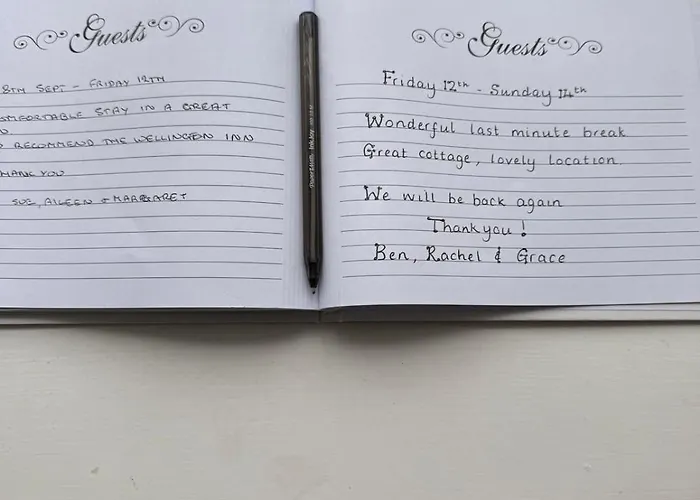 Guests
8TH SEPT - FRIDAY 12TH
STAY IN A GREAT
RECOMMEND THE WELLINGTON INN
SUE, AILEEN + MARGARET
Guests
Friday 12th - Sunday 14th
Wonderful last minute break
Great cottage, lovely location.
We will be back again
Thank you!
Ben, Rachel & Grace